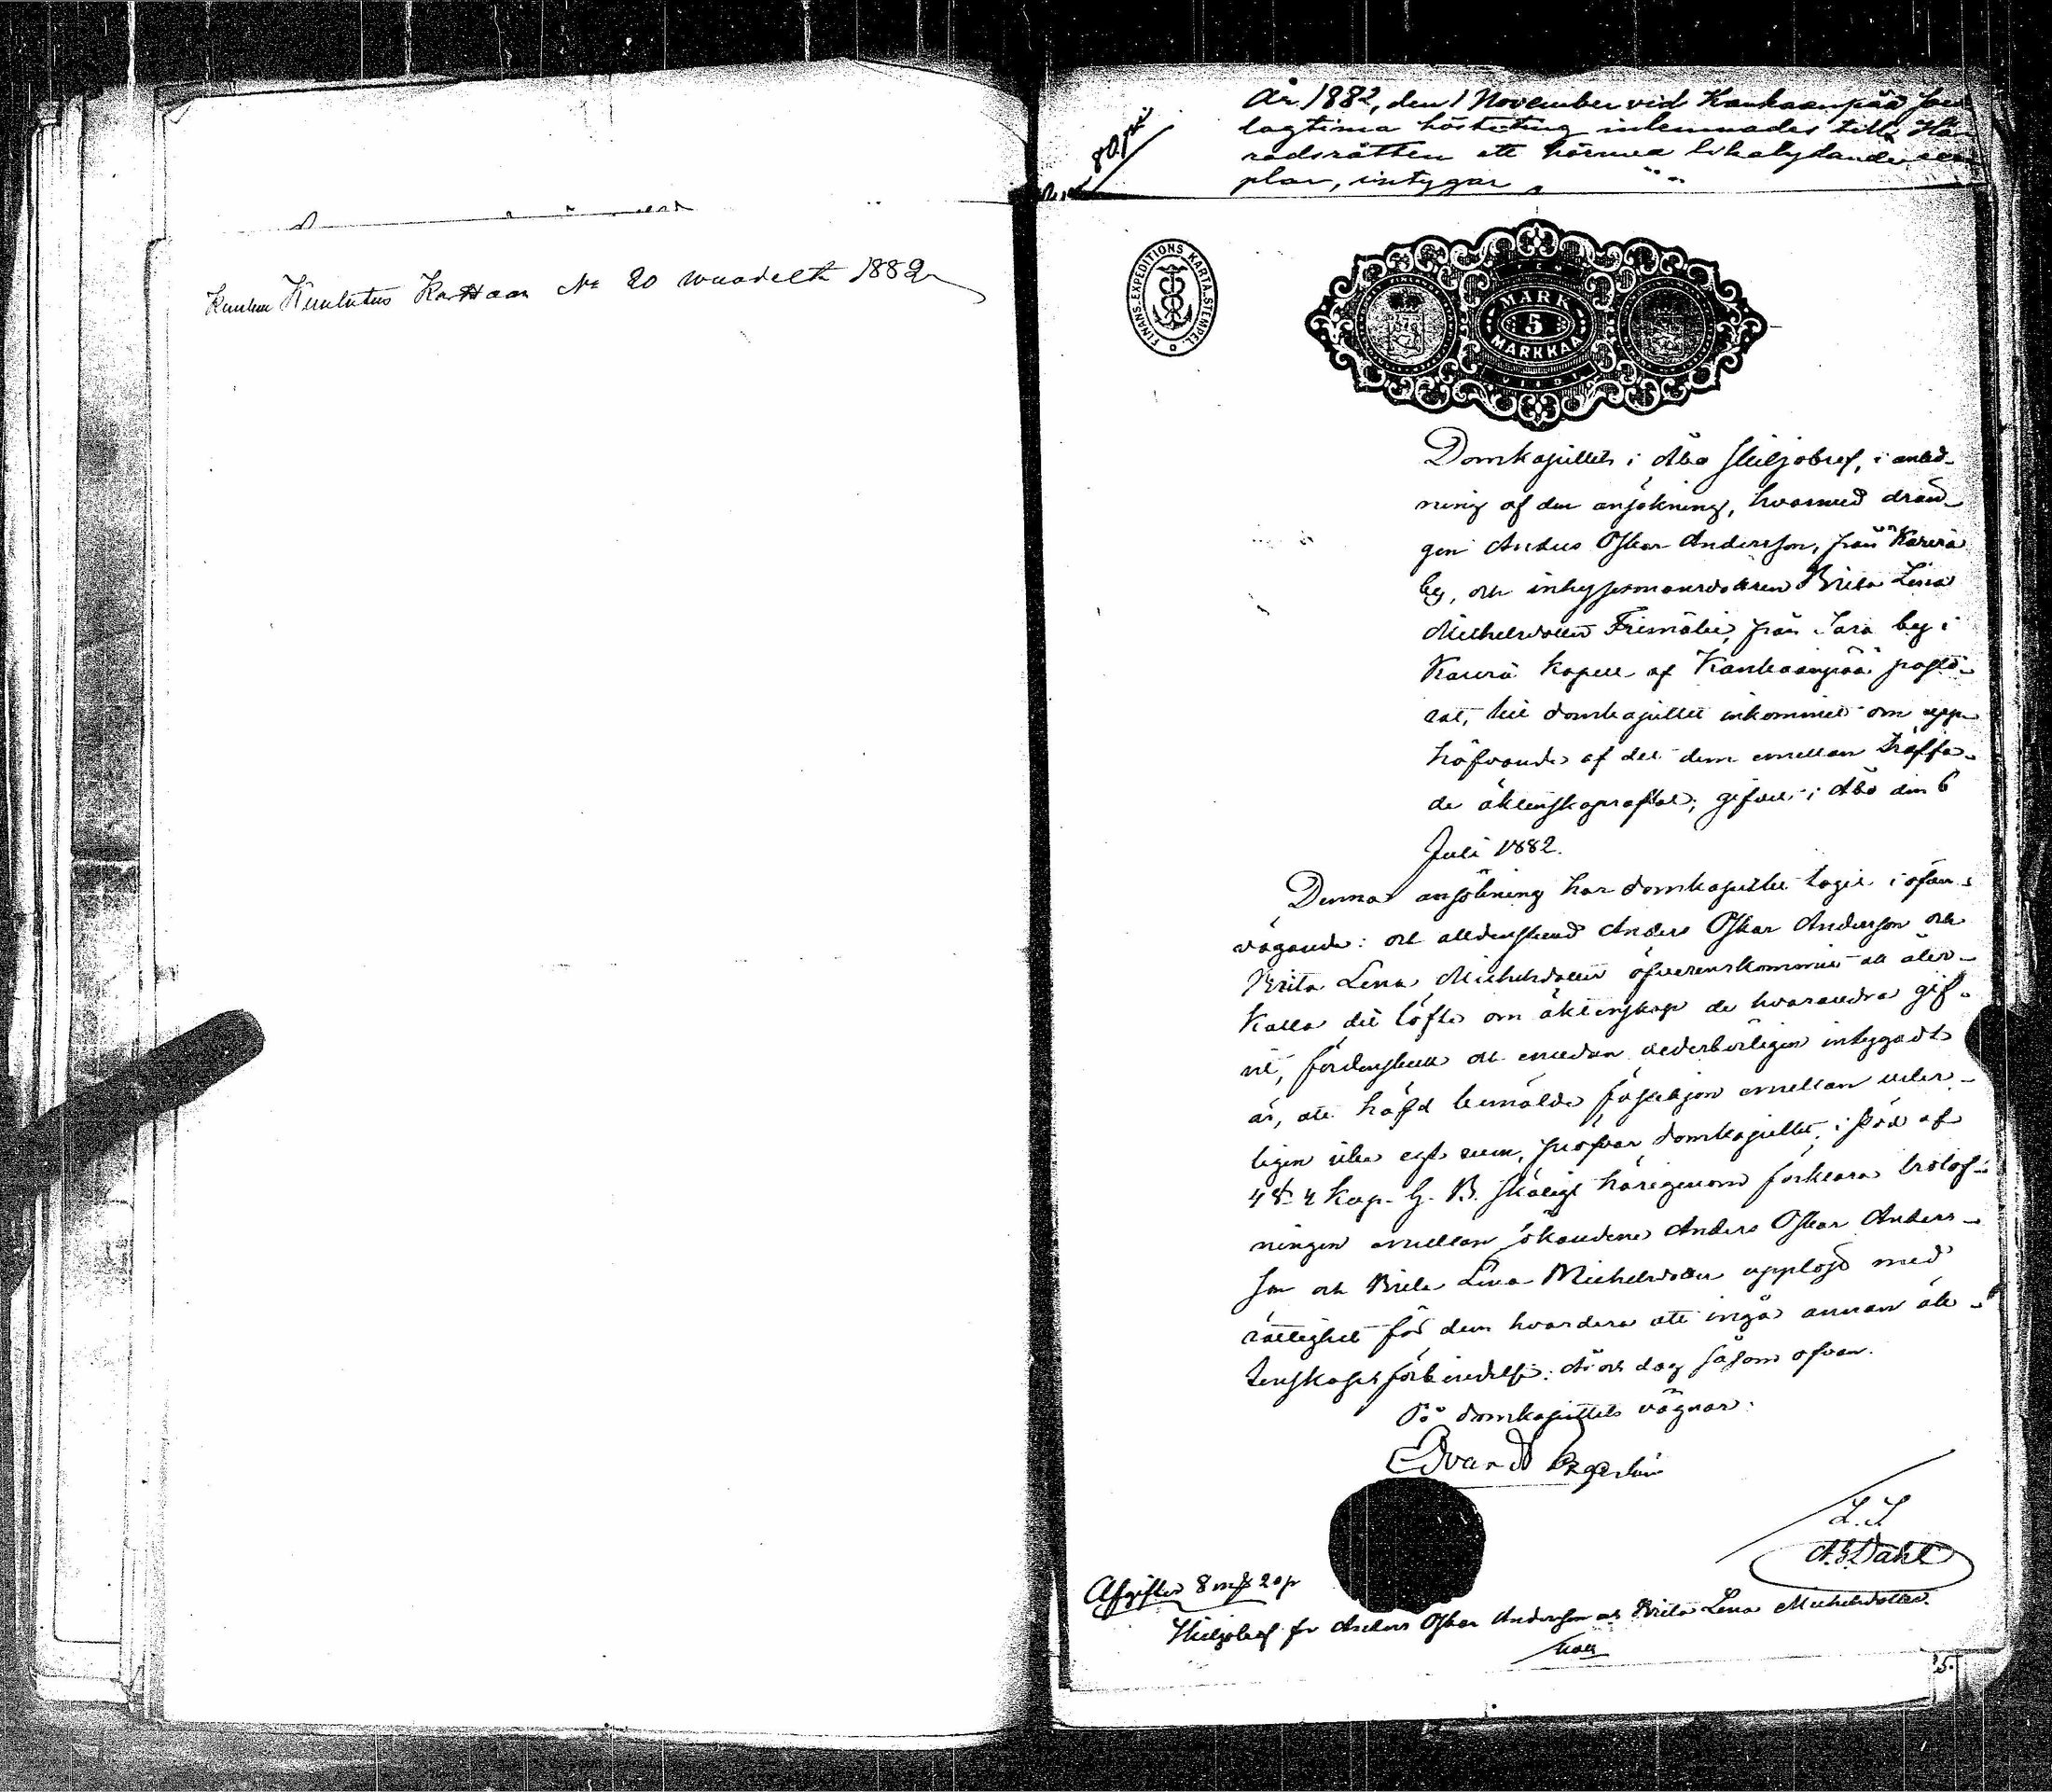 Kuuluu Kuulutus Kirjaan No 20 wuodelta 1882
80 pni
År 1882, den 1 November vid Kankaanpää
lagtima hösteting inlemnades till Hä-
radsrätten ett härmed likalydande exem
plar, intygar
FINANS.EXPEDITIONS KARTA.STEMPEL.
MARK
5
MARKKAA
Domkapitlets i Åbo skiljobref, i anled-
ning af den ansökning, hvarmed drän-
gen Anders Oskar Andersson, från Karvia
by, och inhysesmansdottren Brita Lena
Michelsdotter från Sara by i
Karvia kapell af Kankaanpää pasto-
rat, till domkapitlet inkommit om upp-
häfvande af det dem emellan träffa-
de äktenskapsaftal; gifvet i Åbo den 6
Juli 1882.
Denna ansökning har domkapitlet tagit i öfver-
vägande: och alldenstund Anders Oskar Andersson och
Brita Lena Michelsdotter öfverenskommit att åter-
kalla det löfte om äktenskap de hvarandra gif-
vit, fördenskull och emedan vederbörligen intygadt
är, att häfd bemälde fästehjon emellan veter-
ligen icke egt rum, pröfvar domkapitlet, i stöd af
4 § 4 kap. G. B. skäligt härigenom förklara trolof-
ningen emellan sökandene Anders Oskar Anders-
son och Brita Lena Michelsdotter upplöst med
rättighet för dem hvardera att ingå annan äk-
tenskapsförbindelse. År och dag såsom ofvan.
På domkapitlets vägnar:
Edvard
L.S.
Dahl
Afgifter 8 mk 20 p
Skiljobref för Anders Oskar Andersson och Brita Lena Michelsdotter.